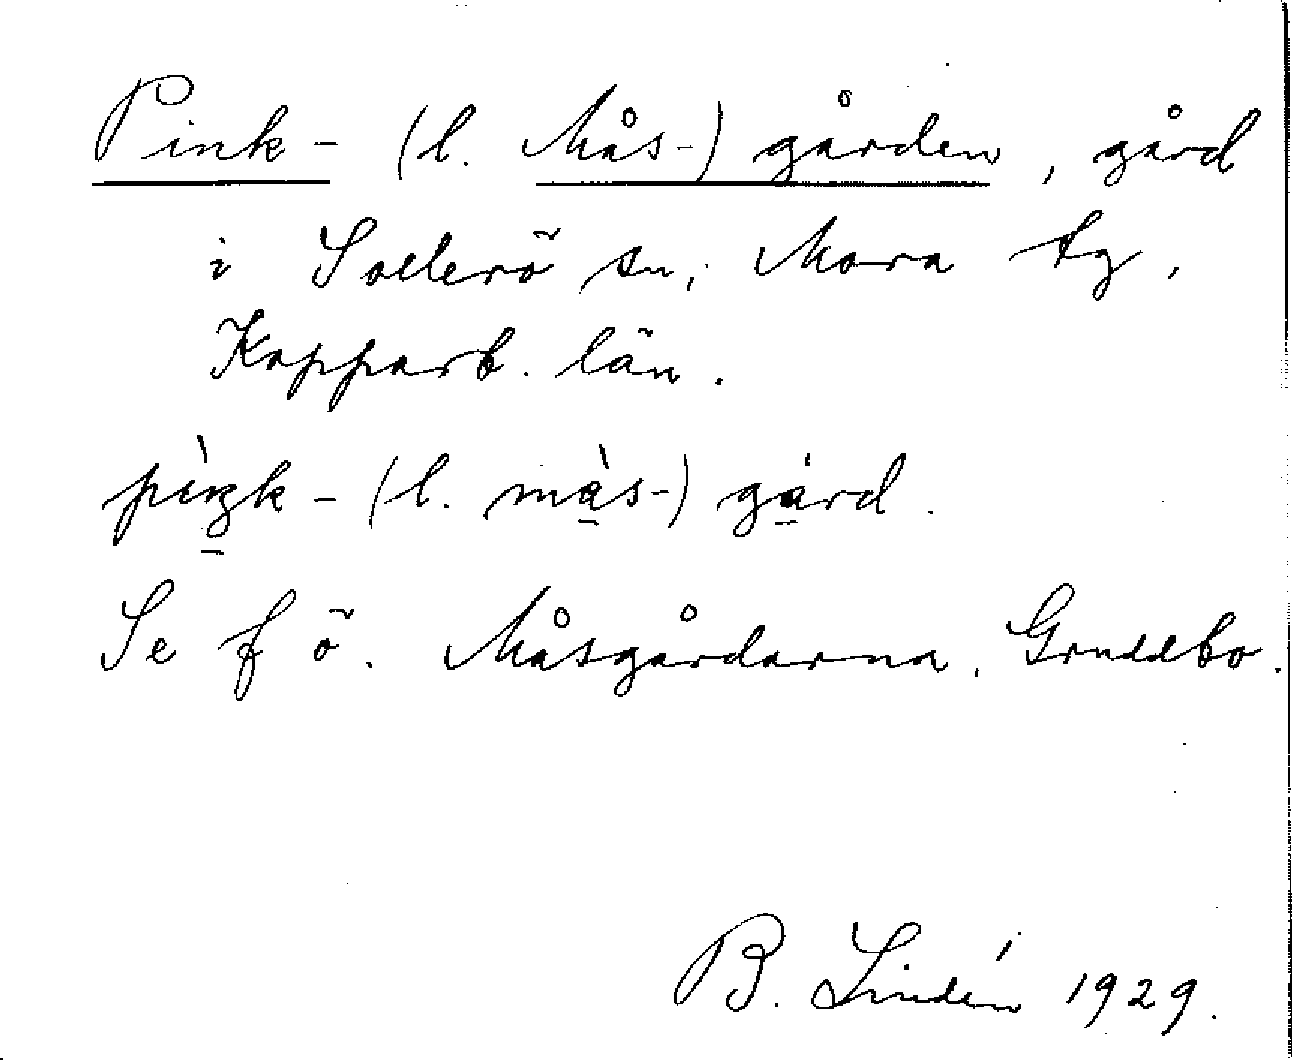 Pink- (l. Mås-) gården, gård
i Sollerö sn, Mora tg,
Kopparb. län.
pìŋk- (l. màs-) gård.
Se f ö. Måsgårdarna, Gruddbo.
B. Lindén 1929.